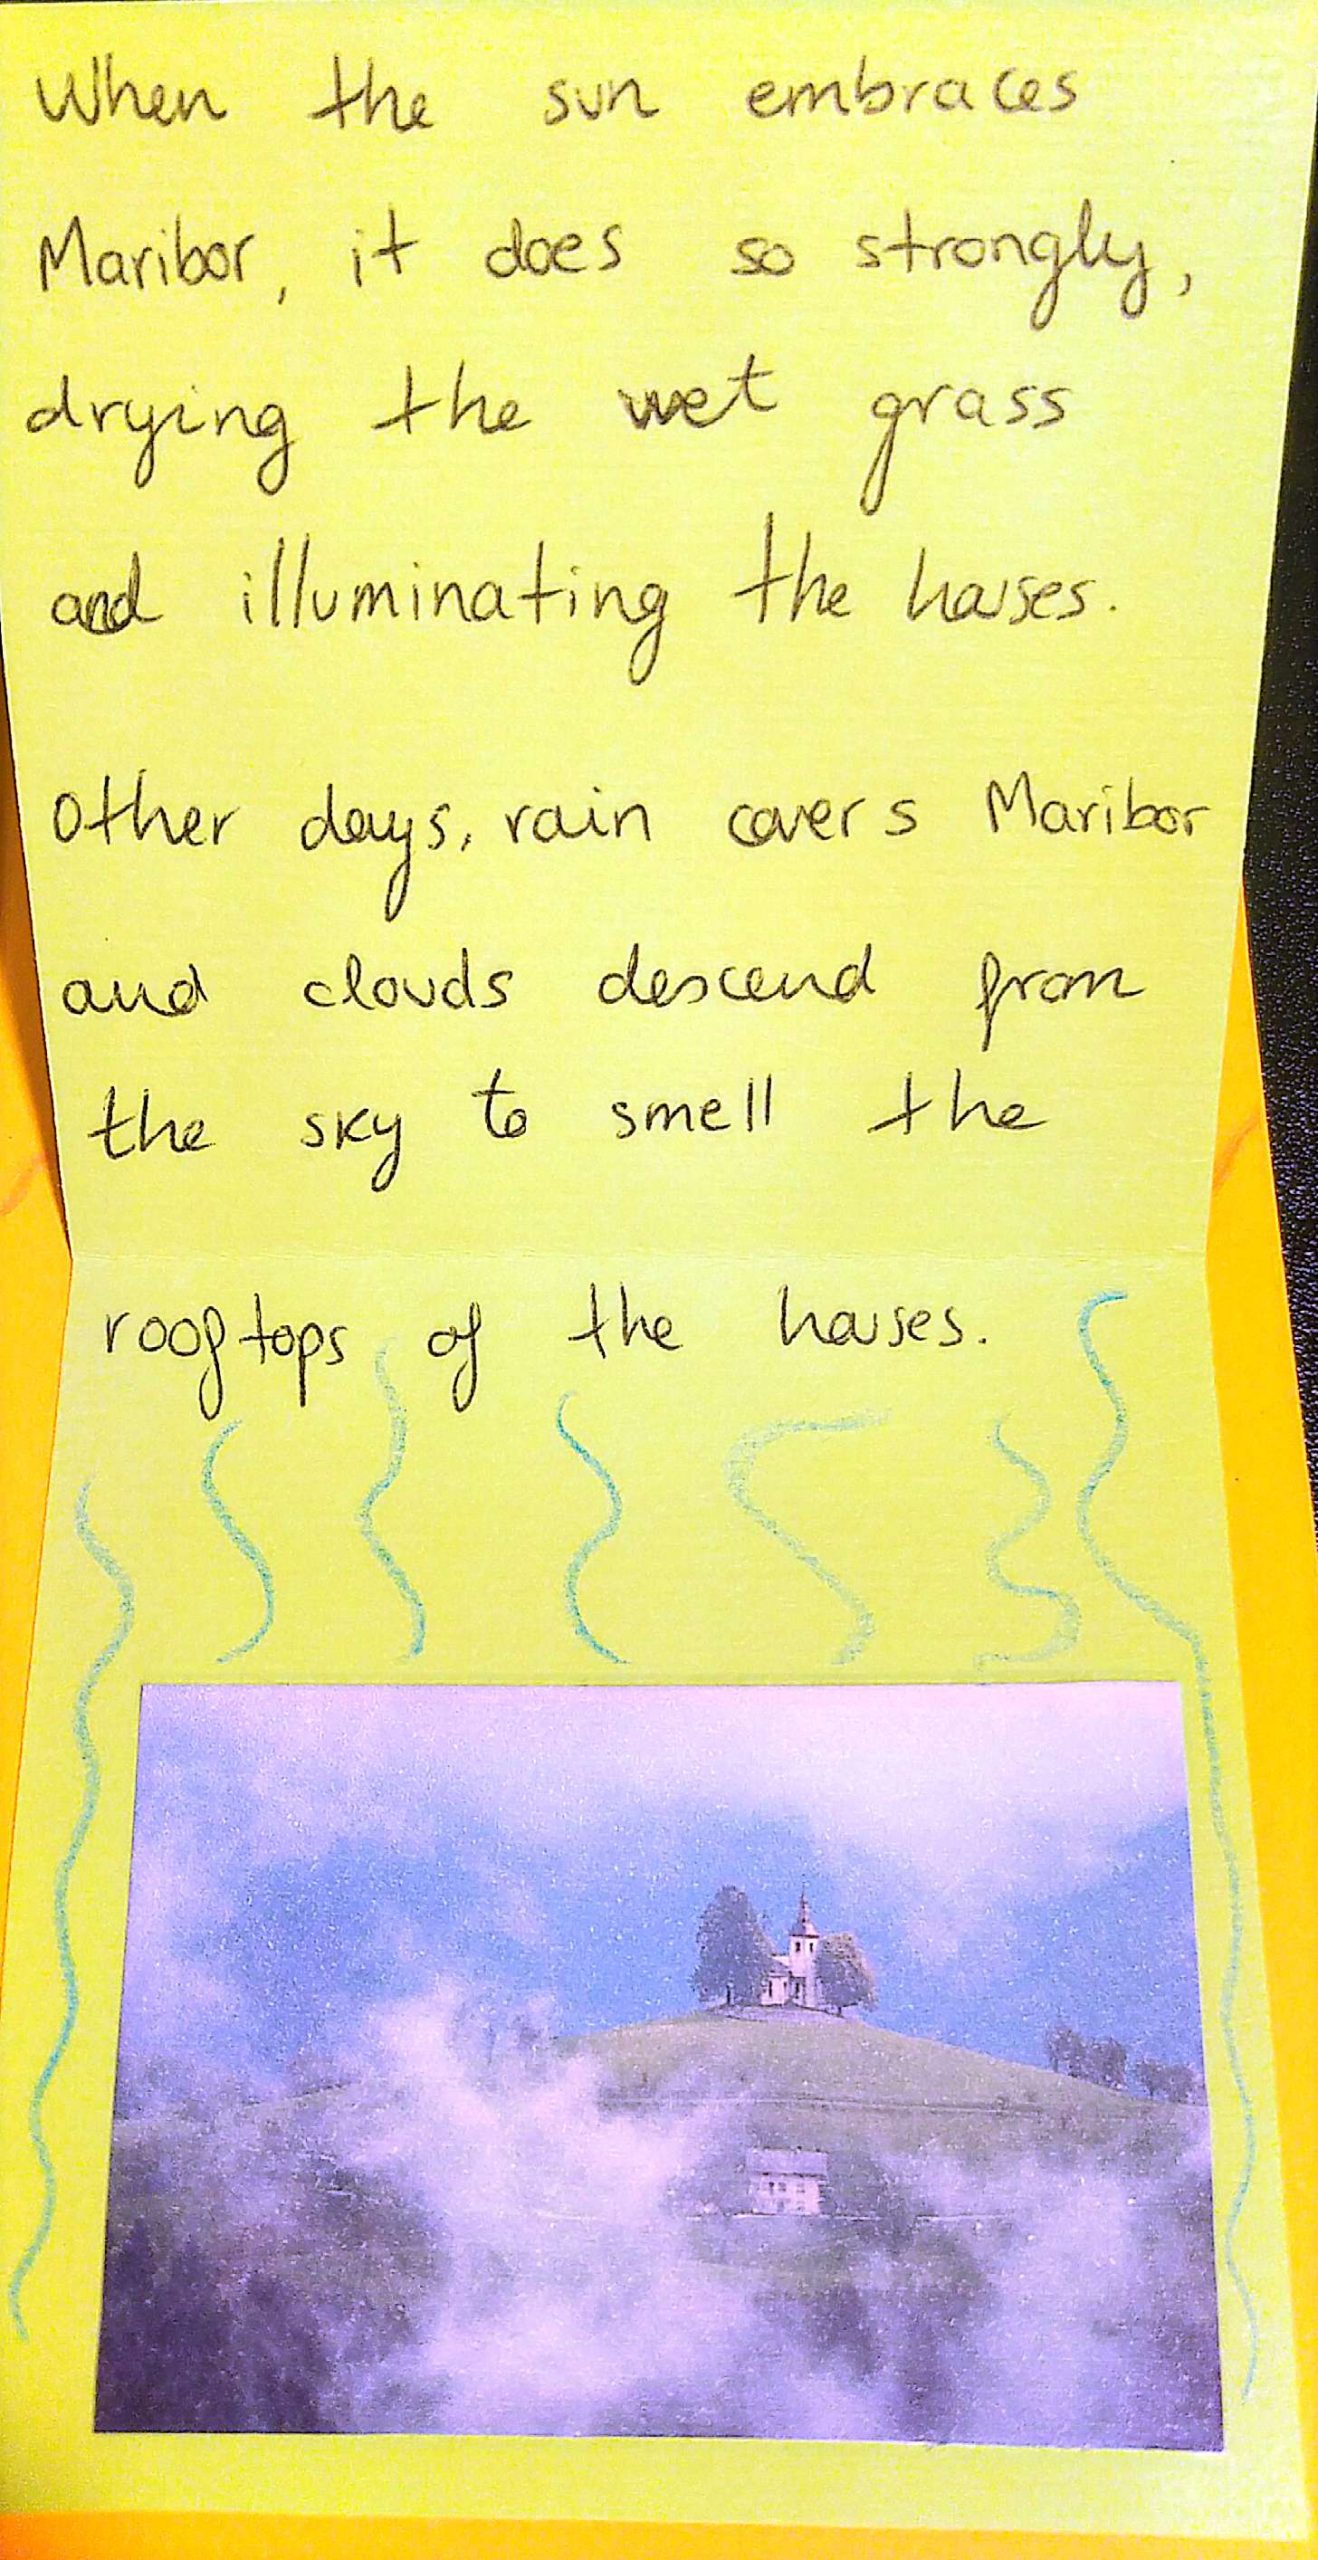 When the sun embraces
Maribor, it does so strongly,
drying the wet grass
and illuminating the houses.
Other days, rain covers Maribor
and clouds descend from
the sky to smell the
rooftops of the houses.